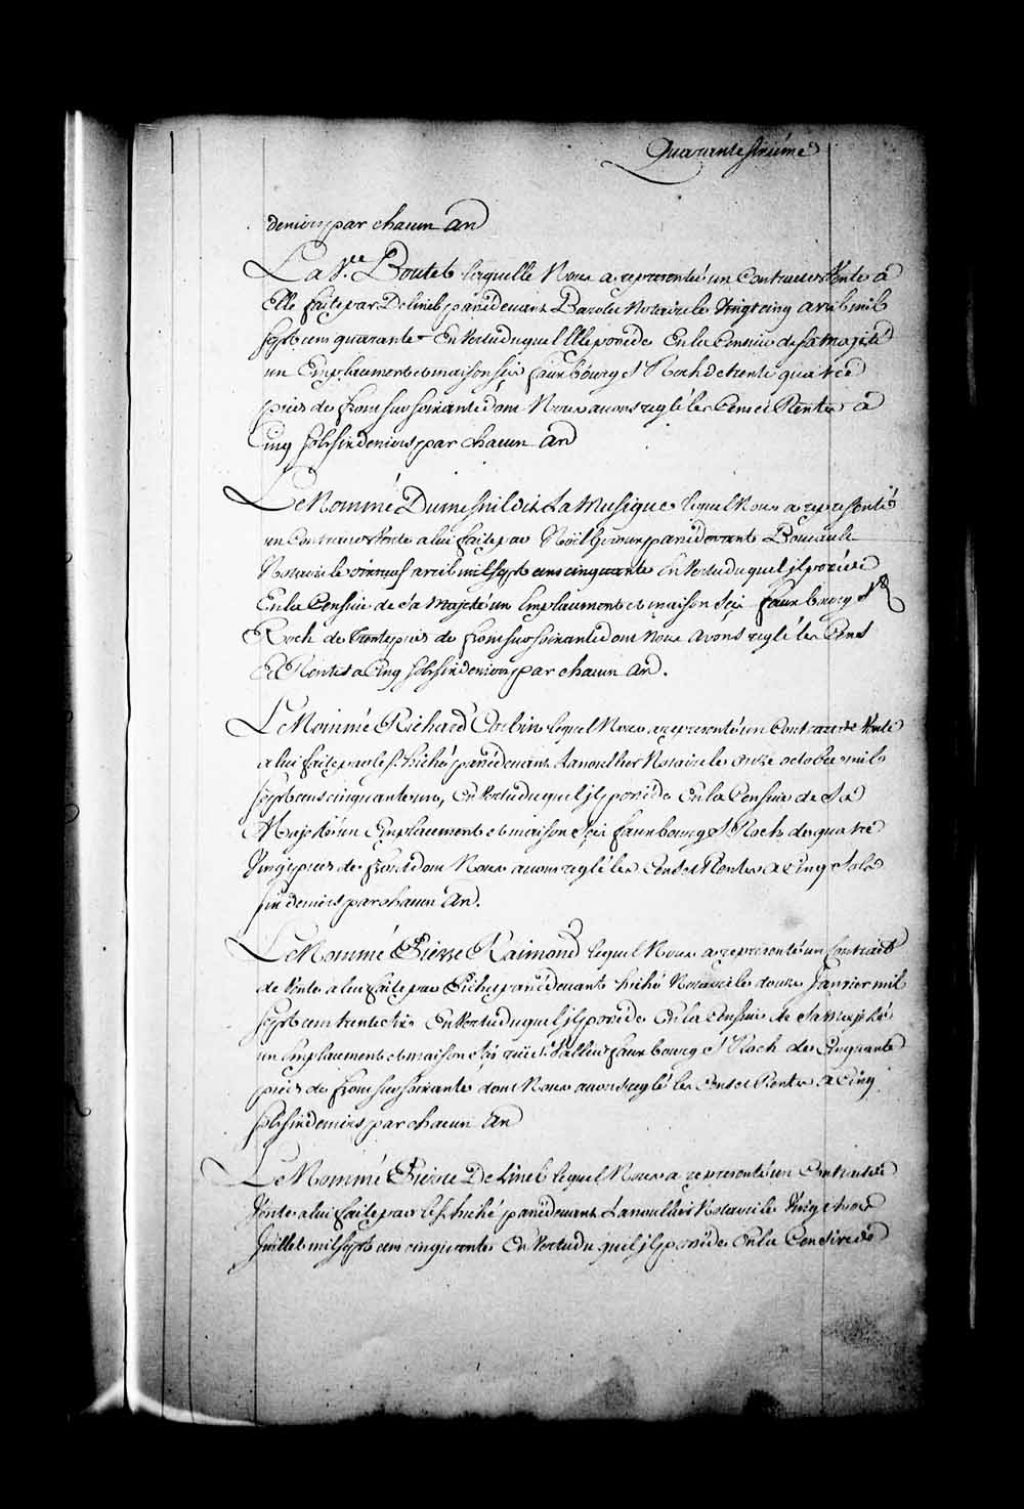 Quarante sixiéme
deniers par chacun an
La Ve. Boutet laquelle Nous a representé un Contract de Vente à
Elle faite par Delinel pardevant Barolet Notaire le Vingt cinq avril mil
sept cens quarante En Vertu duquel Elle possede En la Censive de sa Majesté
un Emplacement et maison scis faux bourg St Roch de trente quatre
pieds de front sur soixante dont Nous avons reglé les Cens et Rentes à
Cinq sols six deniers par chacun an
Le Nommé Dumesnil dit La Musique lequel Nous a representé
un Contract de Vente a lui faite par Noël Giroux pardevant Bonneault
Notaire le avril mil sept cens cinquante En Vertu duquel il possede
En la Censive de sa Majesté un Emplacement et maison scis faux bourg St
Roch de trente pieds de front sur soixante dont Nous avons reglé les Cens
Et Rentes a Cinq sols six deniers par chacun an.
Le Nommé Richard Corbin lequel Nous a representé un Contract de Vente
a lui faite par le Sr. hiché pardevant Lanoullier Notaire le onze octobre mil
sept cens cinquante un, En Vertu duquel il possede En la Censive de Sa
Majesté un Emplacement et maison scis faux bourg St Roch de quatre
Vingt pieds de front dont Nous avons reglé les Cens et Rentes a Cinq Sols
six deniers par chacun an.
Le Nommé Pierre Raimond lequel Nous a representé un Contract
de Vente a lui faite par Piché pardevant hiché Notaire le douze Janvier mil
sept cens trente six En Vertu duquel il possede En la Censive de sa Majesté
un Emplacement et maison scis ruë St. Vallier faux bourg St Roch de Cinquante
pieds de front sur soixante dont Nous avons reglé les Cens et Rentes a Cinq
sols six deniers par chacun an
Le Nommé Pierre Delinel lequel Nous a representé un Contract de
Vente a lui faite par le Sr. hiché pardevant Lanoullier Notaire le Vingt trois
Juillet mil sept cens cinquante En Vertu duquel il possede En la Censive de